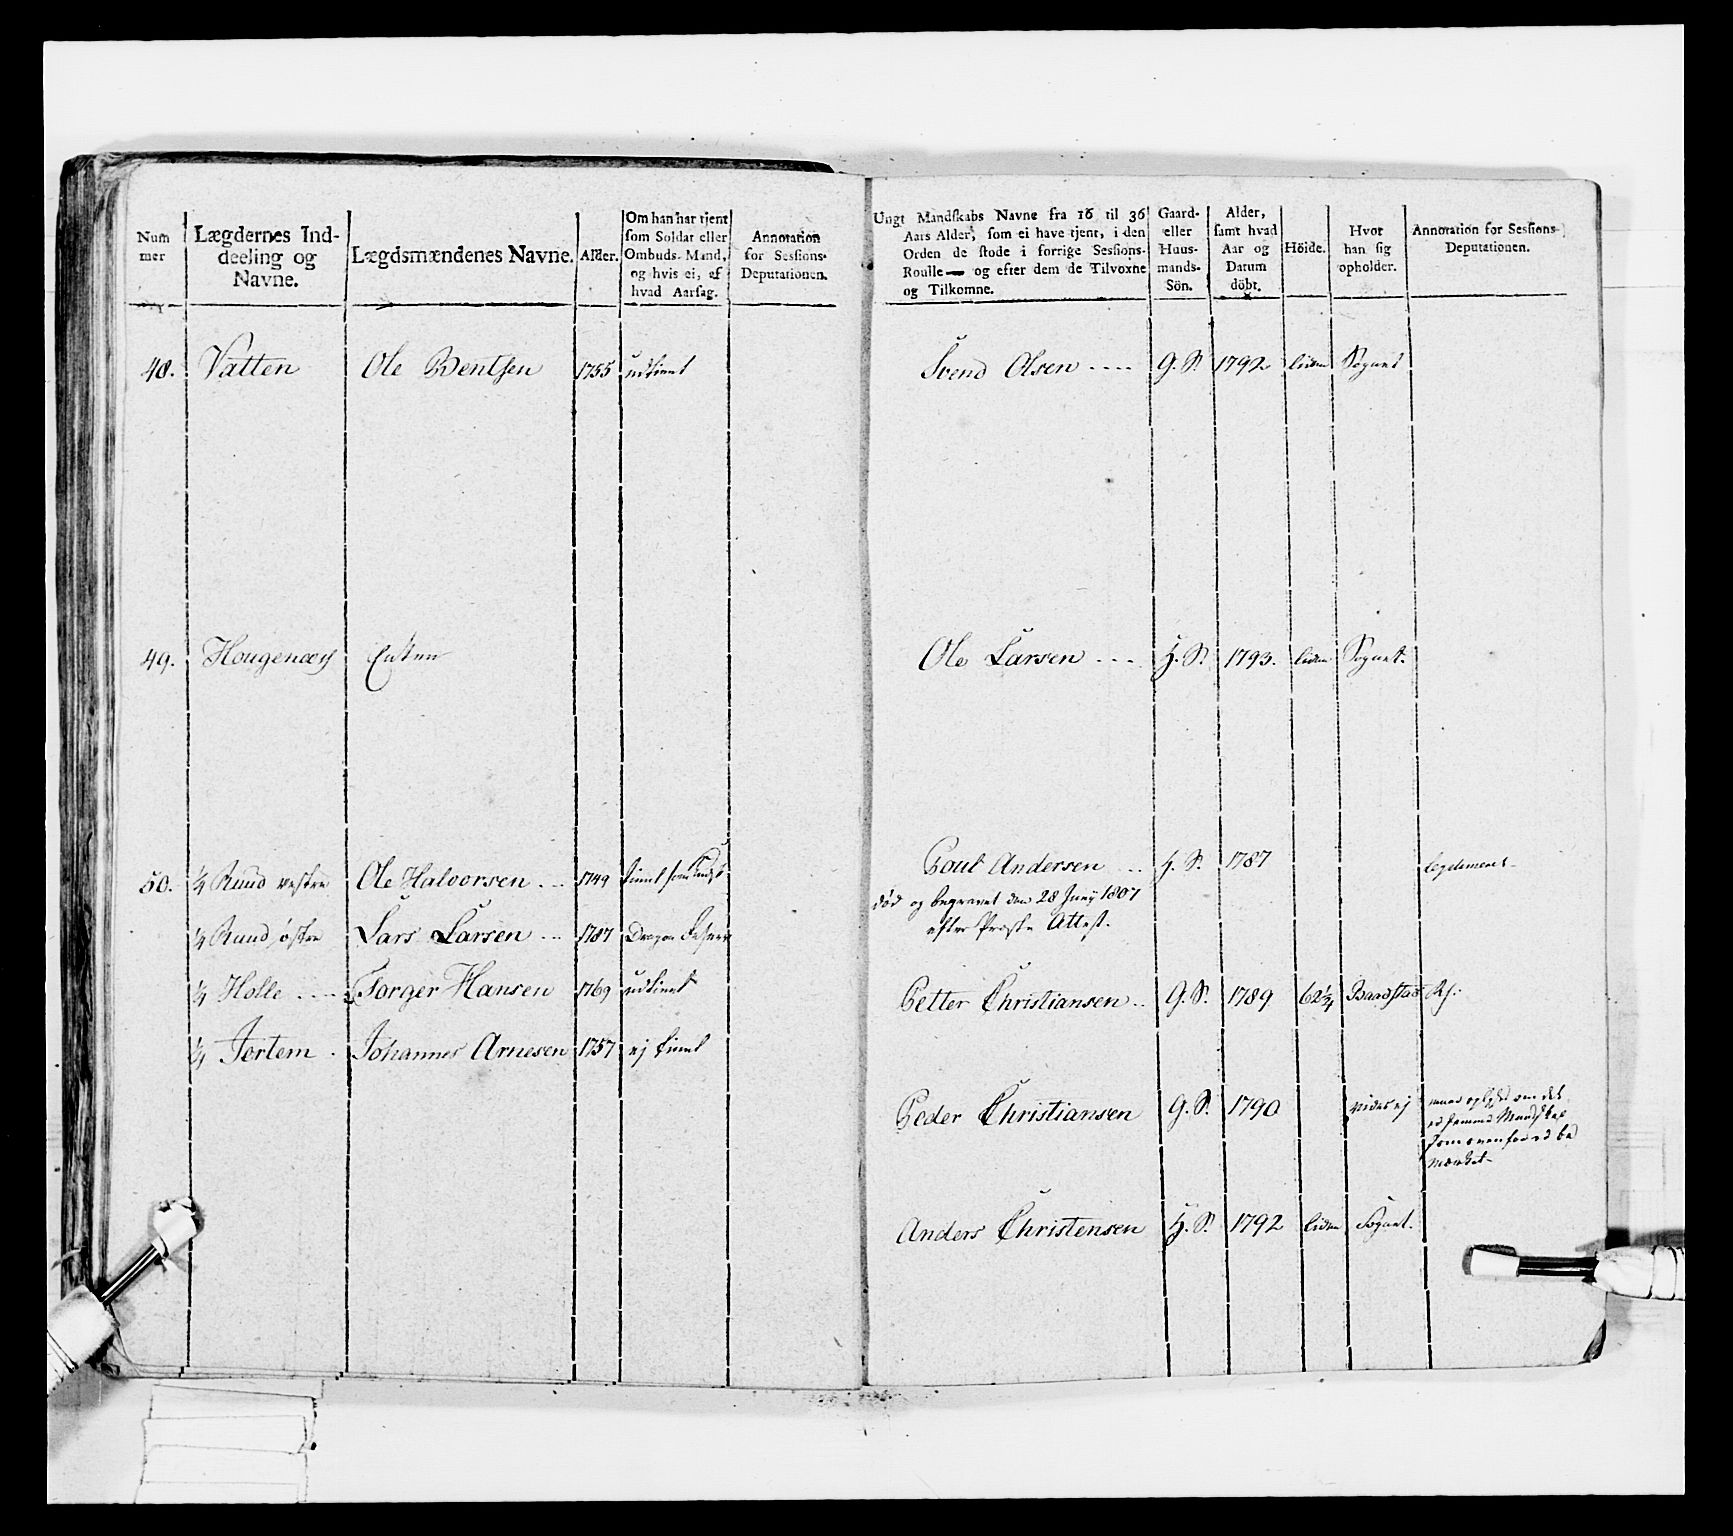 Num
mer
Lægdernes Ind-
deeling og
Navne.
Lægdsmændenes Navne.
Alder.
Om han har tjent
som Soldat eller
Ombuds-Mand,
og hvis ei, af
hvad Aarsag.
Annotation
for Sessions-
Deputationen.
48. Vatten Ole Bentsen 1755 udtient
49. Hougenæs Enken
50. 1/4 Ruud vestre Ole Halvorsen 1749 tient
1/4 Ruud østre Lars Larsen 1787 Dragon
1/4 Holle Torger Hansen 1769 udtient
1/4 Jortem Johannes Arnesen 1757 ej tient
Ungt Mandskabs Navne fra 16 til 36
Aars Alder, som ei have tjent, i den
Orden de stode i forrige Sessions-
Roulle — og efter dem de Tilvoxne
og Tilkomne.
Gaard-
eller
Huus-
mands-
Sön.
Alder,
samt hvad
Aar og
Datum
döbt.
Höide.
Hvor
han sig
opholder.
Annotation for Sessions-
Deputationen.
Svend Olsen G. S. 1792 liden Sognet
Ole Larsen H. S. 1793. liden Sognet.
Poul Andersen H. S. 1787
død og begravet den 28 Junij 1807
efter Præste Attest.
Petter Christiansen G. S. 1789 62 1/4 Baadstad
Peder Christiansen G. S. 1790 vides ej
maae oplyses om det
er samme Mandskab
som ovenfor er be
mærket
Anders Christensen H. S. 1792 liden Sognet.